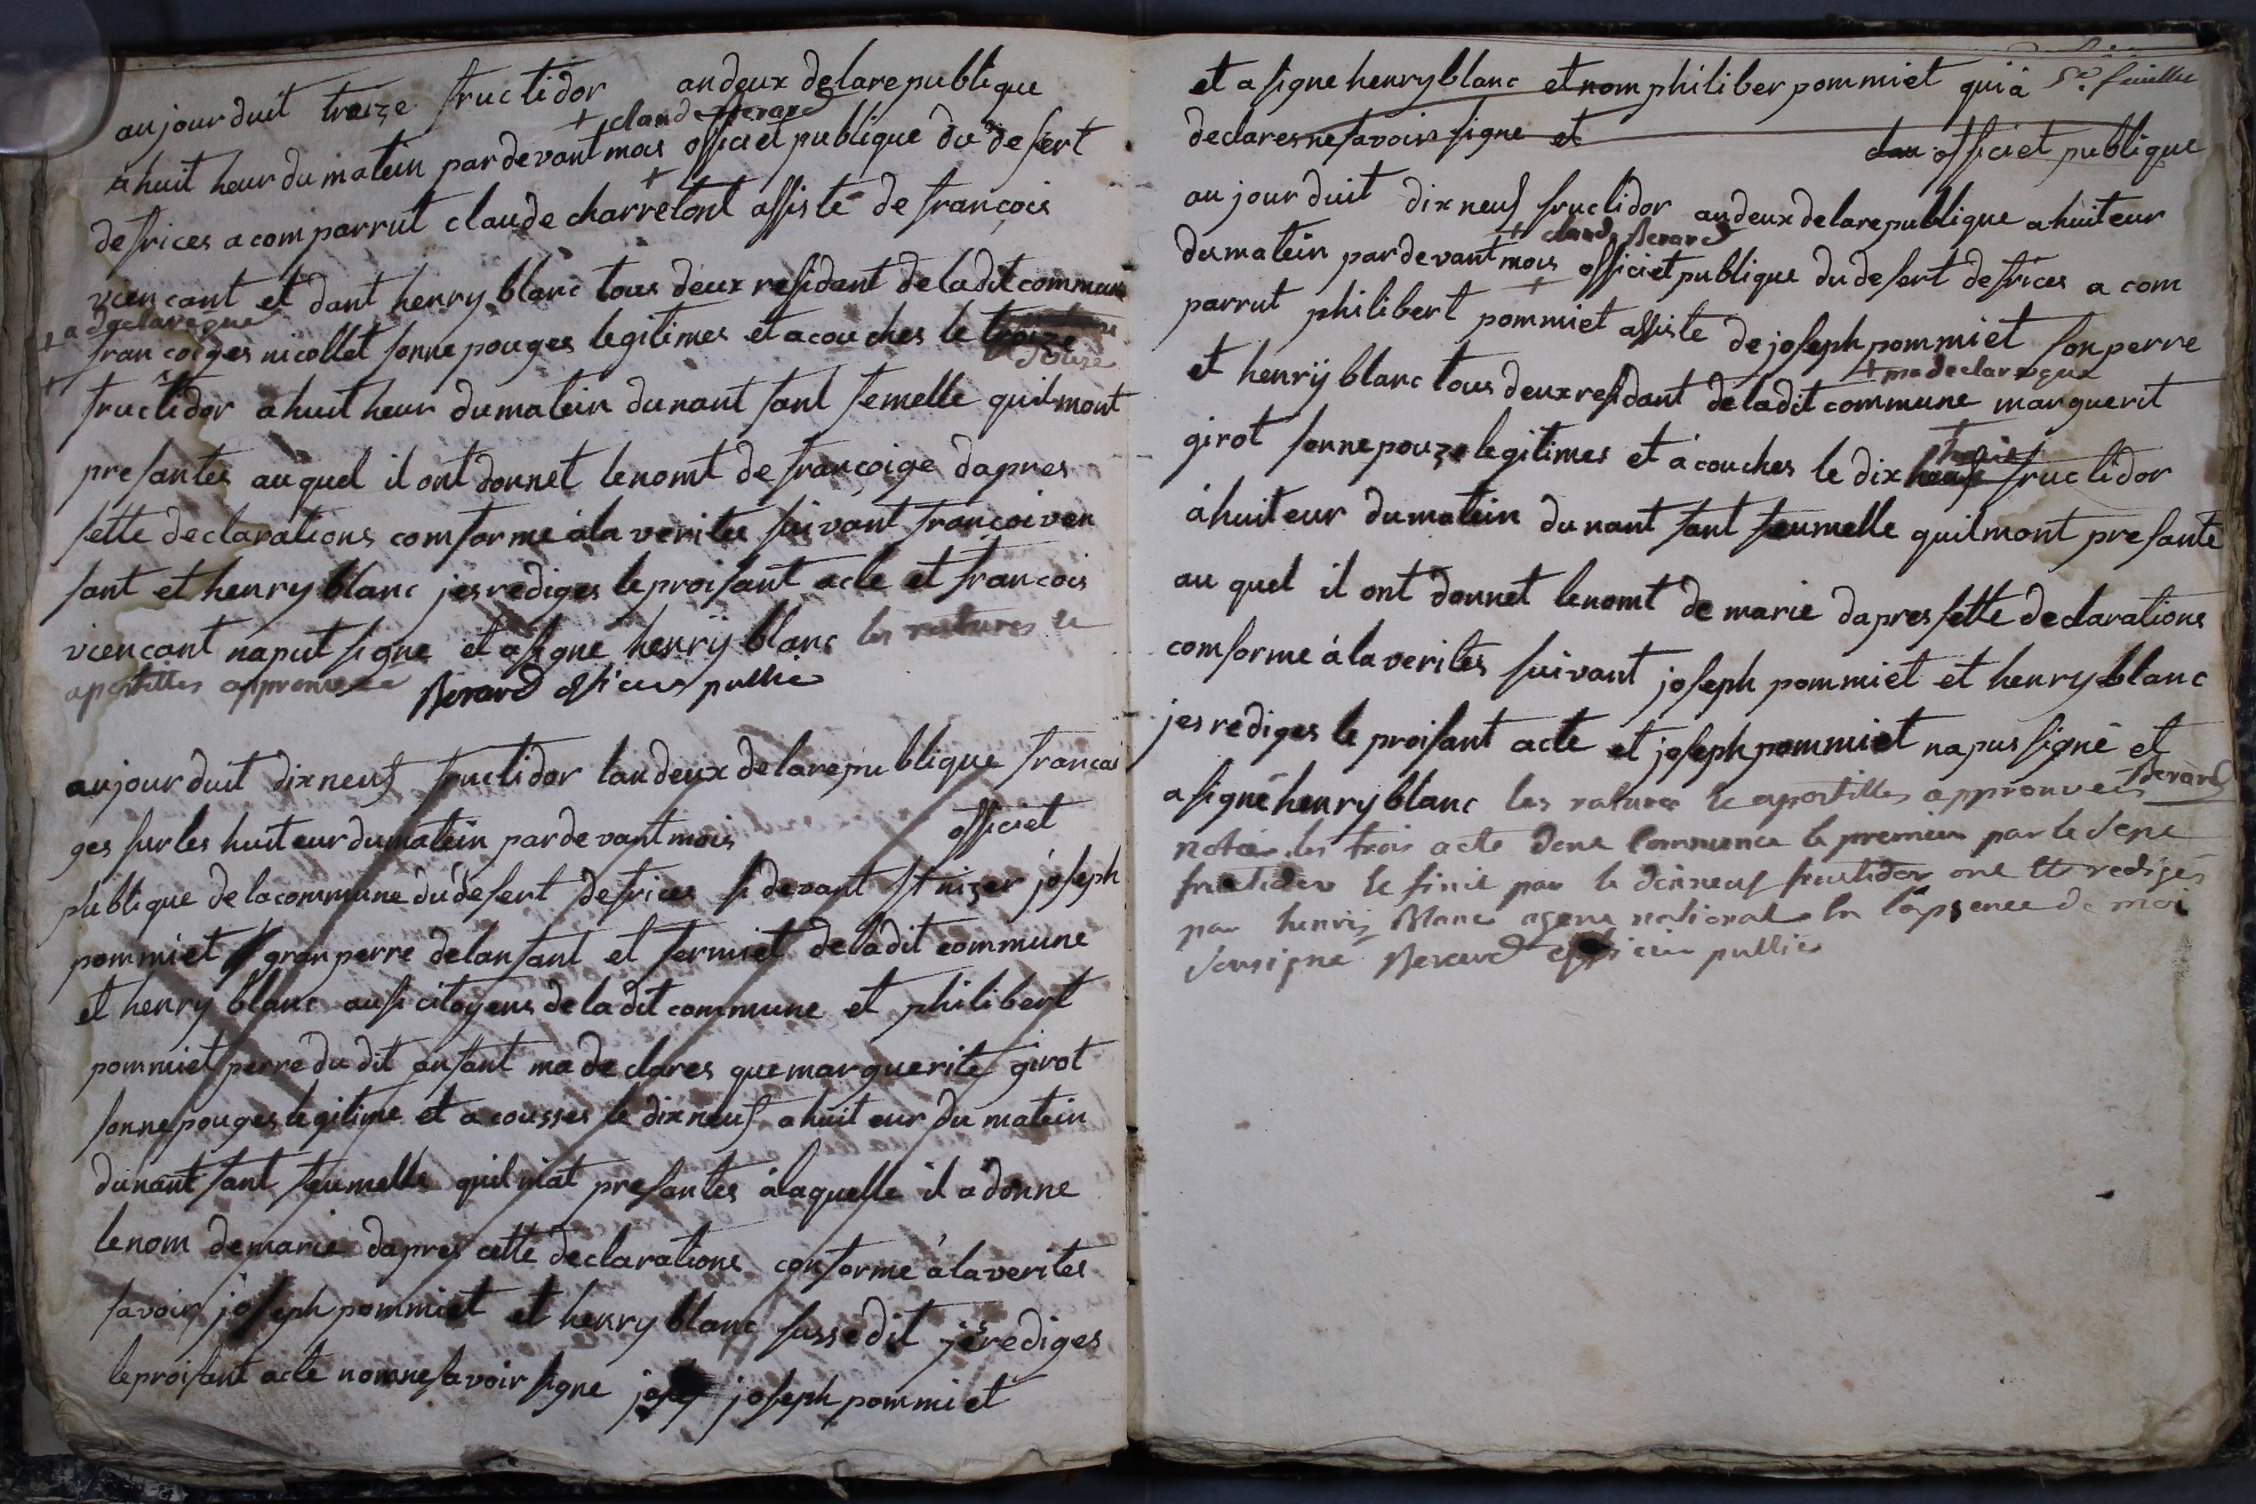 aujourduit treize fructidor andeux delarepublique
+ claude Berard
a huit heur du matein pardevant mois officiet publique du desert
defrices a comparrut claude charretont assisté de françois
viencant et dant henry blanc tous deux residant deladit commune
+ a declare que
francoiges nicollet sonnepouges legitimes et acouches le troize
douze
fructidor a huit heur dumatein dunant fant femelle quil mont
presantes auquel il ont donnet lenomt de françoige dapres
sette declarations comforme àla verites suivant françoi vien
sant et henry blanc jes rediges le proisant acte et francois
viencant naput signe et a signe henrÿ blanc les ratures et
apostilles approuvée Berard officier public
aujourduit dixneuf fructidor landeux delarepublique francai
ges sur les huit eur dumatein pardevant mois officiet
publique de lacommune du desert defrices sidevant st nizer joseph
pommiet granperre delanfant et fermiet deladit commune
et henry blanc ausi citoyens deladit commune et philibert
pommiet perre dudit anfant ma declares que marguerite girot
sonnepouges legitime et a cousses le dixneuf a huit eur du matein
dunant fant feumelle quil mat presantes àlaquelle il a donne
lenom demarie dapres cette declarations conforme àlaverites
savoir joseph pommiet et henry blanc sussedit jes rediges
leproisant acte nomne savoir signe josep joseph pommiet
et a signe henry blanc et nom philiber pommiet qui à
5e. feuillee
declares ne savoir signe et
clau officiet publique
aujourduit dixneuf fructidor andeux delarepublique a huit eur
+ claude Berard
dumatein pardevant mois officiet publique du desert defrices a com
parrut philibert pommiet assiste de joseph pommiet sonperre
+ ma declare que
et henrÿ blanc tous deux residant de ladit commune marguerit
girot sonnepouze legitimes et àcouches le dix neuf fructidor
à huit eur dumatein dunant fant feumelle quil mont presante
au quel il ont donnet lenomt de marie dapres sette declarations
comforme à la verites suivant joseph pommiet et henry blanc
jes rediges le proisant acte et joseph pommiet napus signé et
a signé henry blanc les ratures et apostilles approuveés Berard
nota les trois acte dont commence le premier par le
fructidor et finit par le dixneuf fructidor ont été redigés
par henrÿ Blanc agent national en lapsence de moi
sousigne Berard officier public